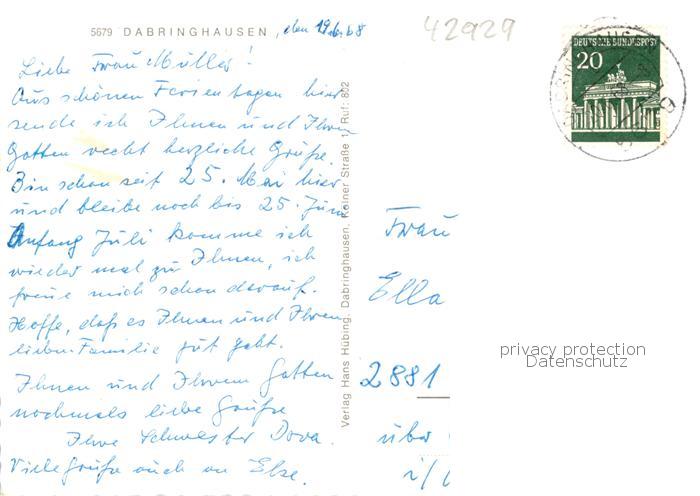 5679 DABRINGHAUSEN, den 19.6.68
42929
DEUTSCHE BUNDESPOST
20
Liebe Frau Müller!
Aus schönen Ferientagen hier
sende ich Ihnen und Ihrem
Gatten recht herzliche Grüße.
Bin schon seit 25. Mai hier
und bleibe noch bis 25. Juni
Anfang Juli komme ich
wieder mal zu Ihnen, ich
freue mich schon darauf.
Hoffe, daß es Ihnen und Ihrer
lieben Familie gut geht.
Ihnen und Ihrem Gatten
nochmals liebe Grüße
Ihre Schwester Dora.
Viele Grüße auch an Else.
Verlag Hans Hübing, Dabringhausen, Kölner Straße 1, Ruf: 802
Frau
Ella
2881
über
i/
privacy protection
Datenschutz